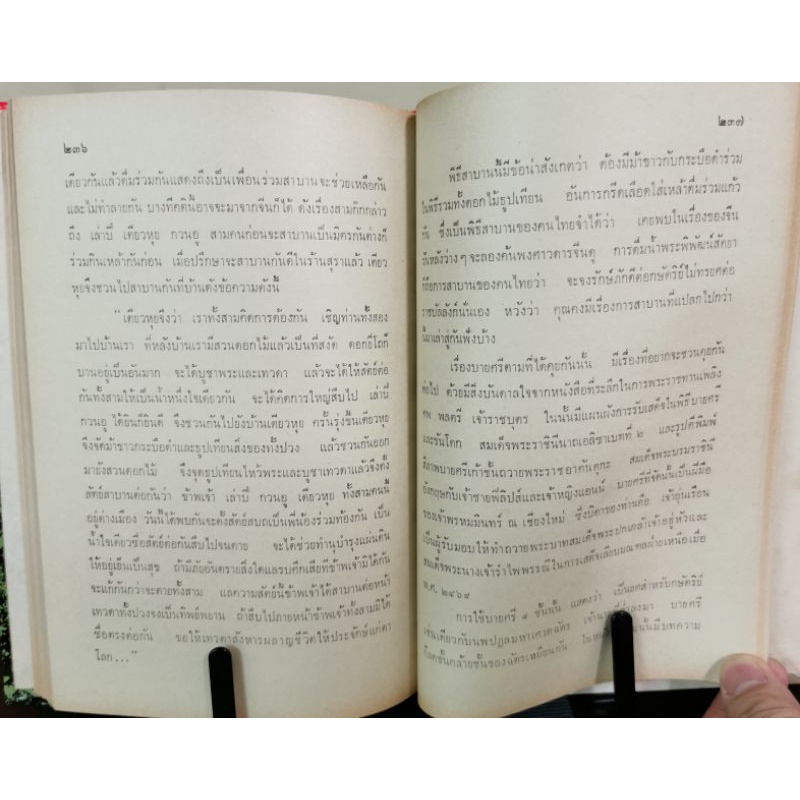 ๒๓๖
เดียวกันแล้วดื่มร่วมกันแสดงถึงเป็นเพื่อนร่วมสาบานจะช่วยเหลือกัน
และไม่ทำลายกัน บางทีคตินี้อาจจะมาจากจีนก็ได้ ดังเรื่องสามก๊กกล่าว
ถึง เล่าปี่ เตียวหุย กวนอู สามคนก่อนจะสาบานเป็นมิตรกันต่างก็
ร่วมกินเหล้ากันก่อน เมื่อปรึกษาจะสาบานกันดีในร้านสุราแล้ว เตียว
หุยจึงชวนไปสาบานกันที่บ้านดังข้อความดังนี้
“เตียวหุยจึงว่า เราทั้งสามคิดการต้องกัน เชิญท่านทั้งสอง
มาไปบ้านเรา ที่หลังบ้านเรามีสวนดอกไม้แล้วเป็นที่สงัด ดอกยี่โถก็
บานอยู่เป็นอันมาก จะได้บูชาพระและเทวดา แล้วจะได้ให้สัตย์ต่อ
กันทั้งสามให้เป็นน้ำหนึ่งใจเดียวกัน จะได้คิดการใหญ่สืบไป เล่าปี่
กวนอู ได้ยินก็ยินดี จึงชวนกันไปยังบ้านเตียวหุย ครั้นรุ่งขึ้นเตียวหุย
จึงจัดม้าขาวกระบือดำและธูปเทียนสิ่งของทั้งปวง แล้วชวนกันออก
มายังสวนดอกไม้ จึงจุดธูปเทียนไหว้พระและบูชาเทวดาแล้วจึงตั้ง
สัตย์สาบานต่อกันว่า ข้าพเจ้า เล่าปี่ กวนอู เตียวหุย ทั้งสามคนนี้
อยู่ต่างเมือง วันนี้ได้พบกันจะตั้งสัตย์สบถเป็นพี่น้องร่วมท้องกัน เป็น
น้ำใจเดียวซื่อสัตย์ต่อกันสืบไปจนตาย จะได้ช่วยทำนุบำรุงแผ่นดิน
ให้อยู่เย็นเป็นสุข ถ้ามีภัยอันตรายสิ่งใดแลรบศึกเสียทีข้าพเจ้ามิได้ทิ้งกัน
จะแก้กันกว่าจะตายทั้งสาม แลความสัตย์นี้ข้าพเจ้าได้สาบานต่อหน้า
เทวดาทั้งปวงจงเป็นทิพย์พยาน ถ้าสืบไปภายหน้าข้าพเจ้าทั้งสามมิได้
ซื่อตรงต่อกัน ขอให้เทวดาสังหารผลาญชีวิตให้ประจักษ์แก่ตา
โลก...”
๒๓๗
พิธีสาบานนี้มีข้อน่าสังเกตว่า ต้องมีม้าขาวกับกระบือดำร่วม
ในพิธีรวมทั้งดอกไม้ธูปเทียน อันการกรีดเลือดใส่เหล้าดื่มร่วมแก้ว
กัน ซึ่งเป็นพิธีสาบานของคนไทยจำได้ว่า เคยพบในเรื่องของจีน
วันหลังว่างๆ จะลองค้นพงศาวดารจีนดู การดื่มน้ำพระพิพัฒน์สัตยา
ก็คือการสาบานของคนไทยว่า จะจงรักษ์ภักดีต่อกษัตริย์ไม่ทรยศต่อ
ราชบัลลังก์นั่นเอง หวังว่า คุณคงมีเรื่องการสาบานที่แปลกไปกว่า
นี้มาเล่าสู่กันฟังบ้าง
เรื่องบายศรีตามที่ได้คุยกันนั้น มีเรื่องที่อยากจะชวนคุยกัน
ต่อไป ด้วยมีสิ่งบันดาลใจจากหนังสือที่ระลึกในการพระราชทานเพลิง
ศพ พลตรี เจ้าราชบุตร ในนั้นมีแผนผังการรับเสด็จในพิธีบายศรี
และขันโตก สมเด็จพระราชินีนาถเอลิซาเบทที่ ๒ และรูปตีพิมพ์
สีภาพบายศรีเก้าชั้นถวายพระราชอาคันตุกะ สมเด็จพระบรมราชินี
อังกฤษกับเจ้าชายฟิลิปส์และเจ้าหญิงแอนน์ บายศรีที่จัดนั้นเป็นฝีมือ
ของเจ้าพรหมมินทร์ ณ เชียงใหม่ ซึ่งบิดาของท่านคือ เจ้าอุ่นเรือน
เป็นผู้รับมอบให้ทำถวายพระบาทสมเด็จพระปกเกล้าเจ้าอยู่หัวและ
สมเด็จพระนางเจ้ารำไพพรรณีในการเสด็จเลียบมณฑลฝ่ายเหนือเมื่อ
พ.ศ. ๒๔๖๙
การใช้บายศรี ๙ ชั้นนั้น แสดงว่า เป็นยศสำหรับกษัตริย์
เช่นเดียวกับนพปฎลมหาเศวตฉัตร บายศรี
ก็ลดชั้นคล้ายชั้นของฉัตรเหมือนกัน นั้นมีบทความ